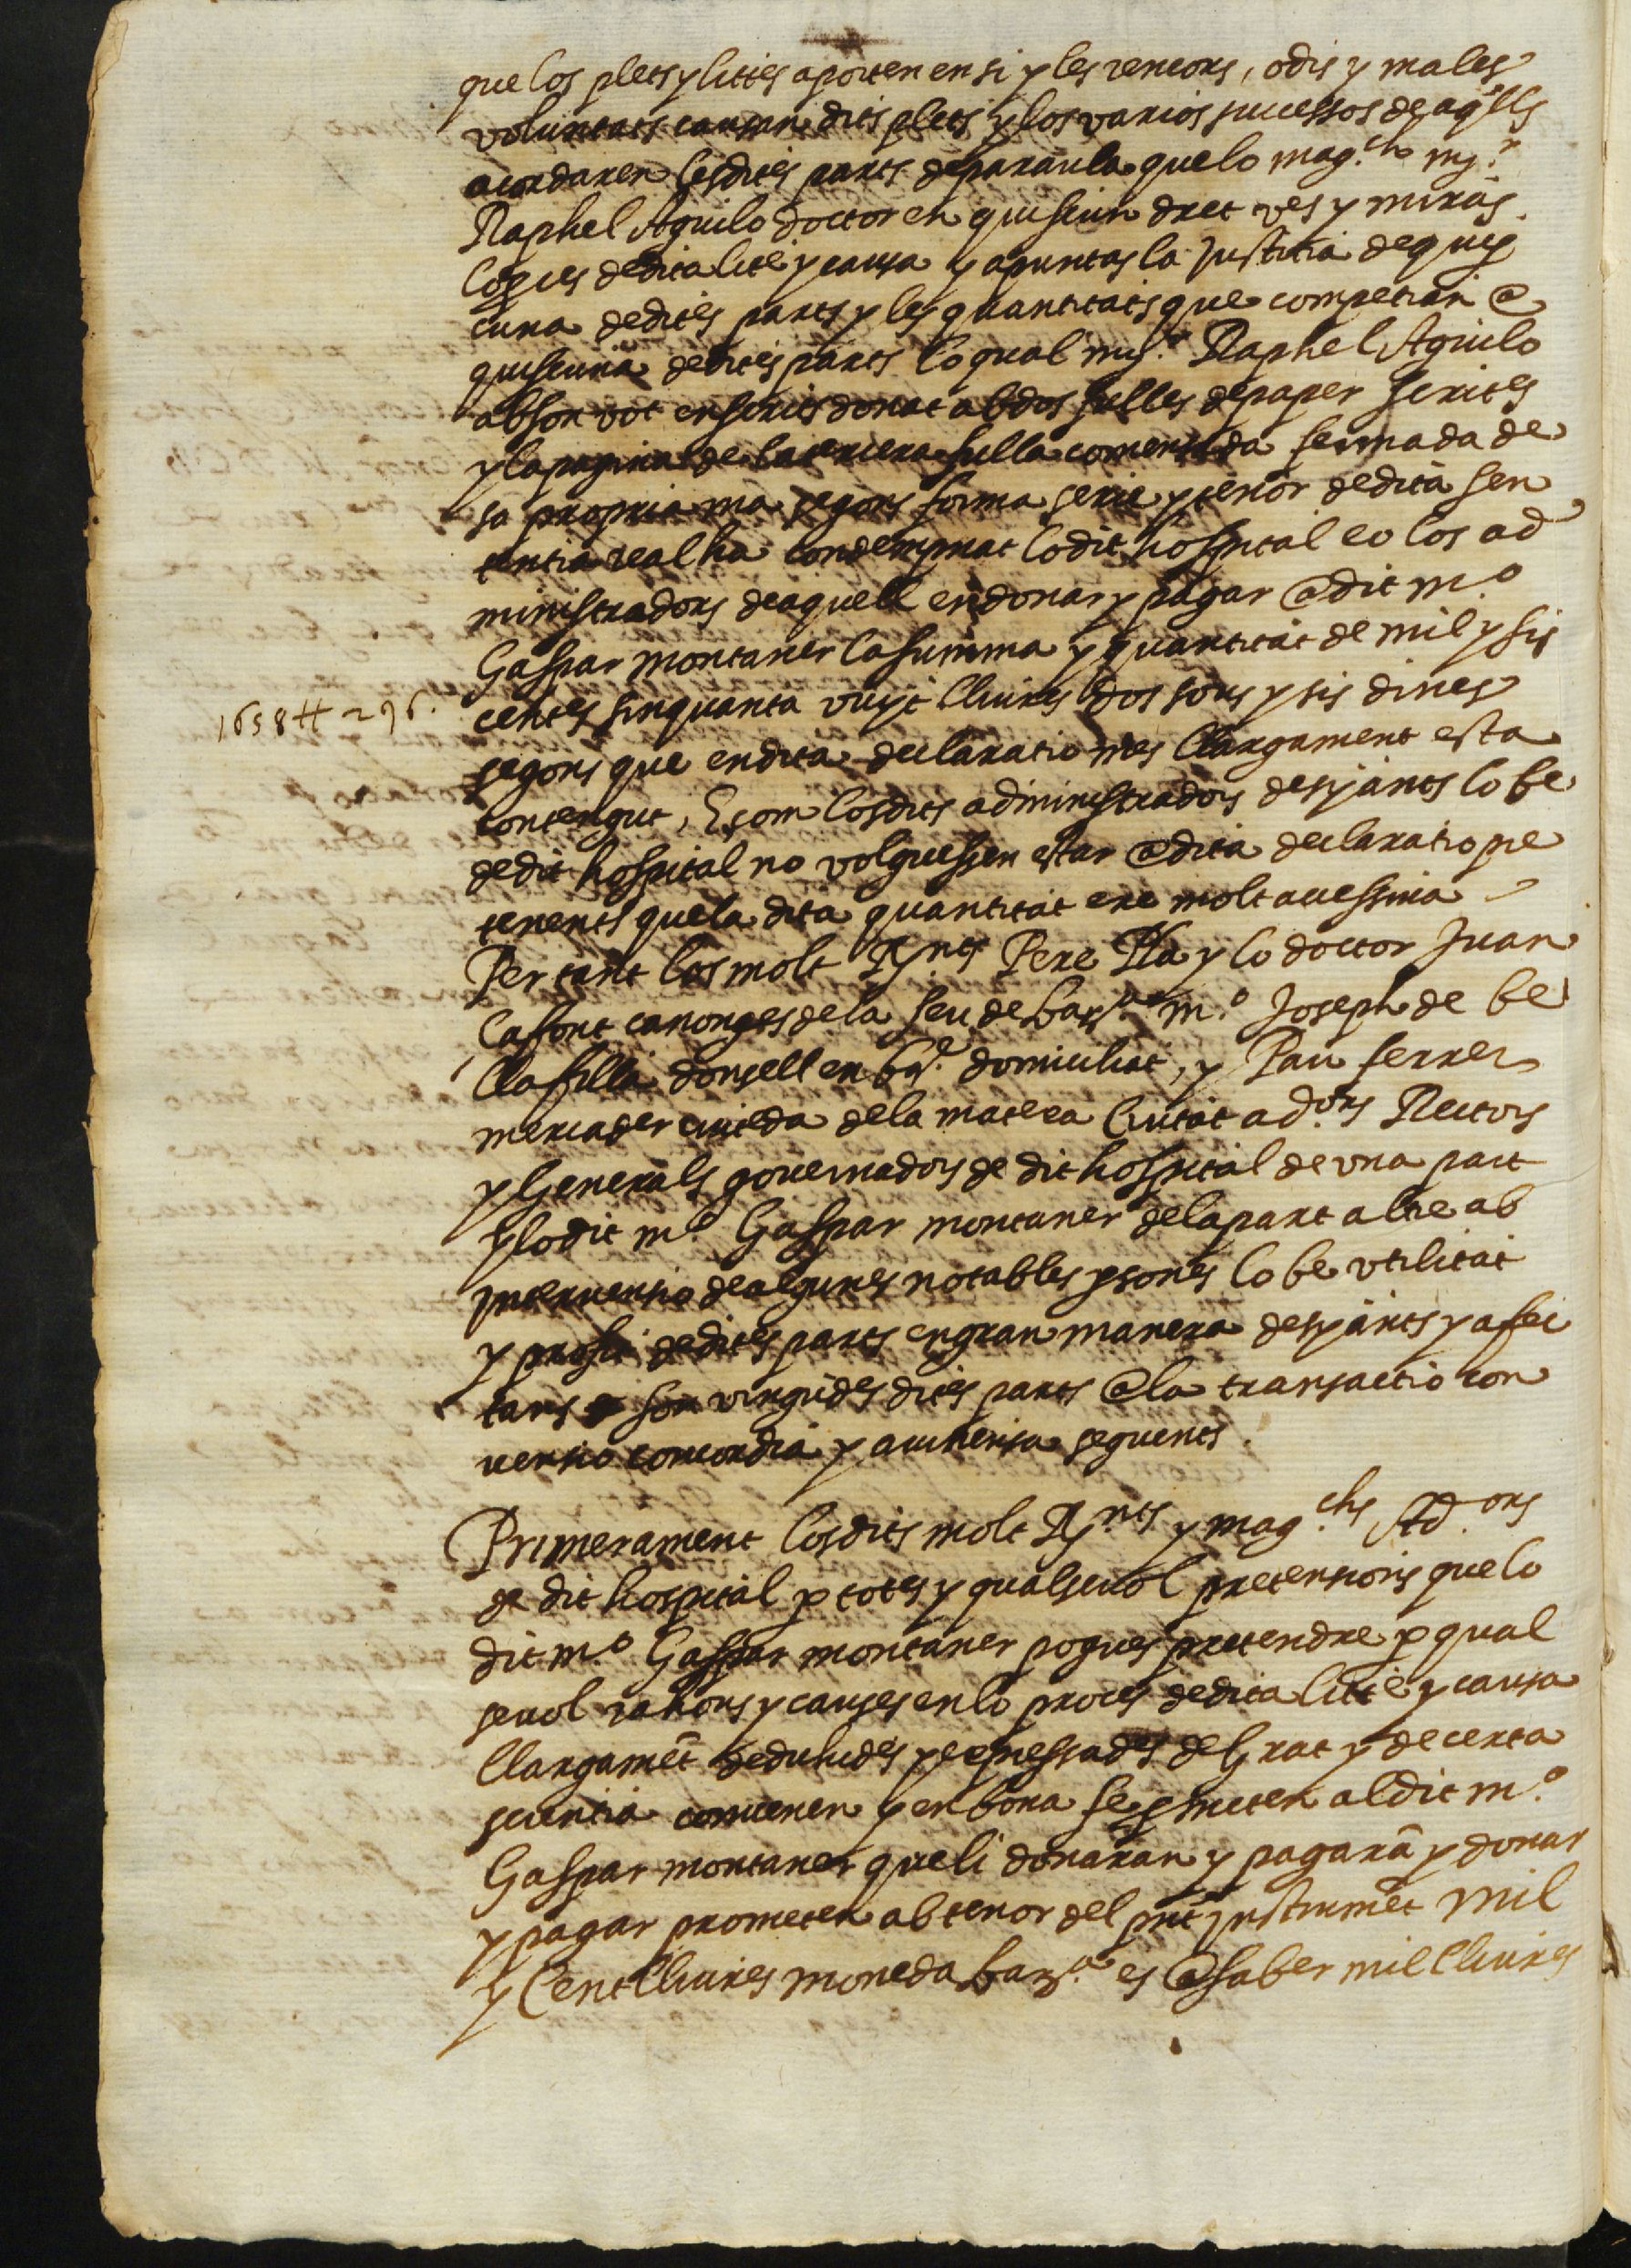 que los plets y lities aporten en si y les rencors, odis y males
voluntats causan dits plets y los varios successos de aq.lls
acordaren les dites parts de paraula que lo mag.ch mº.r
Raphel Aguilo doctor en quiscun dret ves y miràs
lo proces de dita lite y causa y apuntas la Justitia de quis
cuna de dites parts y les quantitats que competian @
quiscuna de dites parts lo qual mº.r Raphel Aguilo
ab son vot en scrits donat ab dos fulles de paper scrites
y la pagina de la tercera fulla comensada fermada de
sa propria ma segons forma serie y tenor de dita sen
tentia real ha condempnat lo dit hospital eo los ad
ministradors de aquell en donar y pagar @ dit m.º
Gaspar montaner la summa y quantitat de mil y sis
centes sinquanta vuyt lliures dos sous y sis dines
1658 ⵌ 2 s 6.
segons que en dita declaratio mes llargament esta
contengut, E com los dits administradors desijants lo be
de dit hospital no volguessen estar @ dita declaratio pre
tenents que la dita quantitat ere molt excessiva
Per tant los molt R.nts Pere Pla y lo doctor Juan
Lafont canonges de la Seu de bar.na m.º Joseph de be
llafilla donsell en b.ª domiciliat, y Pau ferrer
mercader ciuteda de la matexa Ciutat ad.ors Rectors
y Generals gouernadors de dit hospital de vna part
y lo dit m.º Gaspar montaner de la part altre ab
interuensio de algunes notables p̱sones lo be vtilitat
y profit de dites parts en gran manera desijants y afec
tans son vingudes dites parts @ la transactio con
uensio concordia y auinensa seguents.
Primerament los dits molt R.nts y mag.chs Ad.ors
de dit hospital p̱ totes y qualseuol pretensions que lo
dit m.º Gaspar montaner pogues pretendre p̱ qual
seuol rahons y causes en lo proces de dita lite y causa
llargamēt deduhides y expressades de Grat y de certa
scientia conuenen y en bona fe p̱meten al dit m.º
Gaspar montaner que li donaran y pagarā y donar
y pagar prometen ab tenor del pn̄t instrumēt mil
y Cent lliures moneda bar.na es @ saber mil lliures